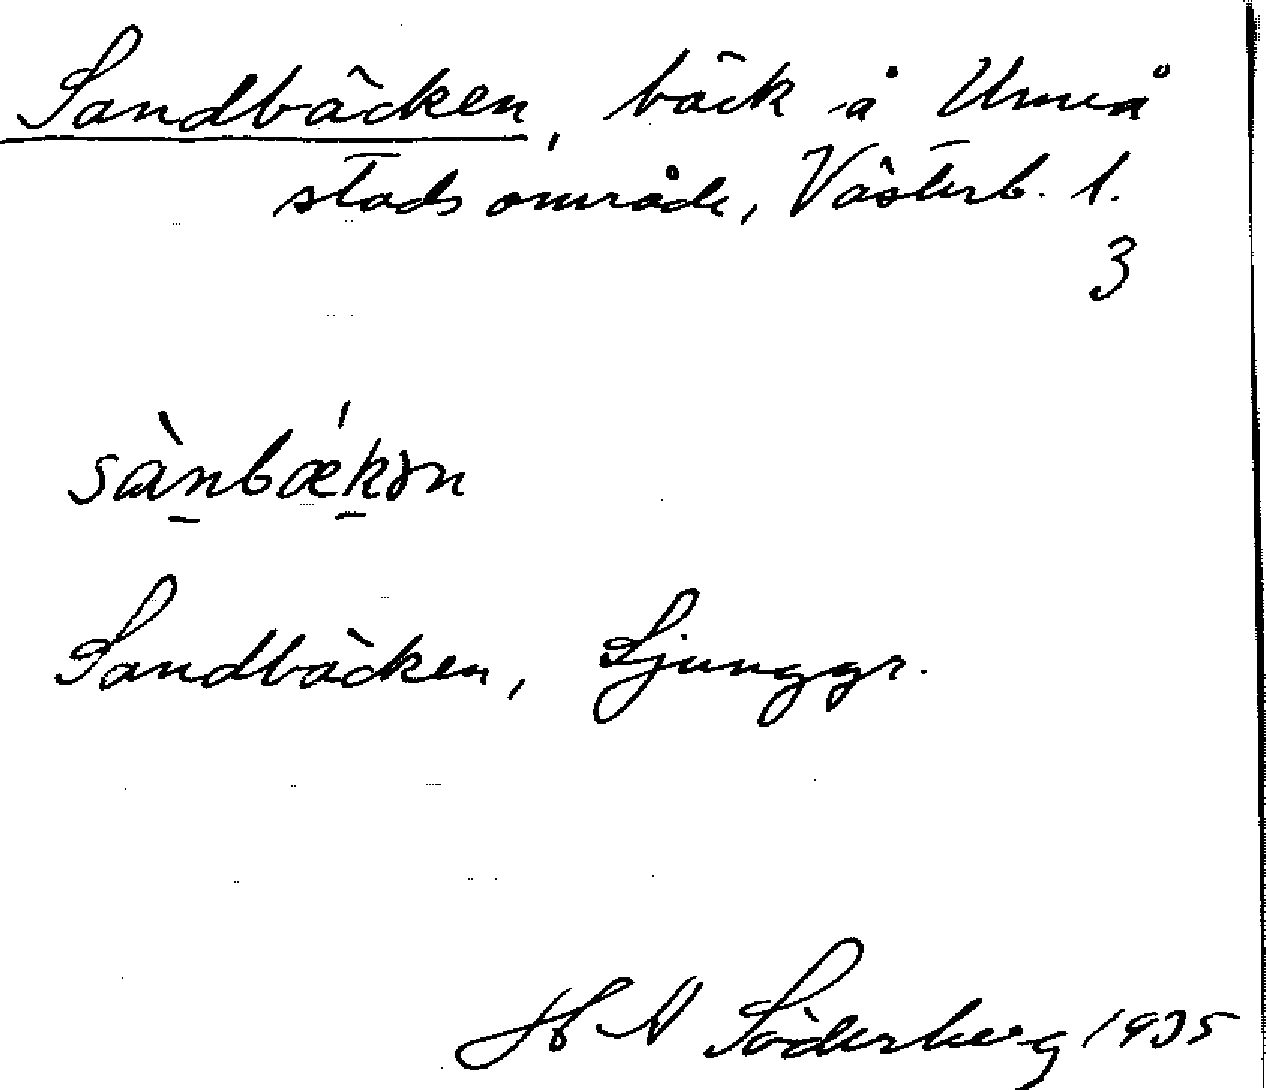 Sandbäcken, bäck å Umeå
stadsområde, Västerb. l.
3
sànbǽkən
Sandbäcken, Ljunggr.
H A Söderberg 1935